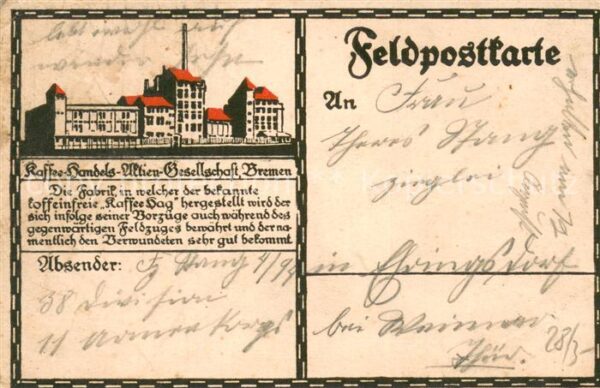 Kaffee-Handels-Aktien-Gesellschaft, Bremen
Die Fabrik, in welcher der bekannte
koffeinfreie „Kaffee Hag" hergestellt wird der
sich infolge seiner Vorzüge auch während des
gegenwärtigen Feldzuges bewährt und der na-
mentlich den Verwundeten sehr gut bekommt.
Absender: Stang 4/94
38 Division
11 Armeekorps
Feldpostkarte
An Frau
Stang
in Ehringsdorf
bei Weimar
Thür.
28/3